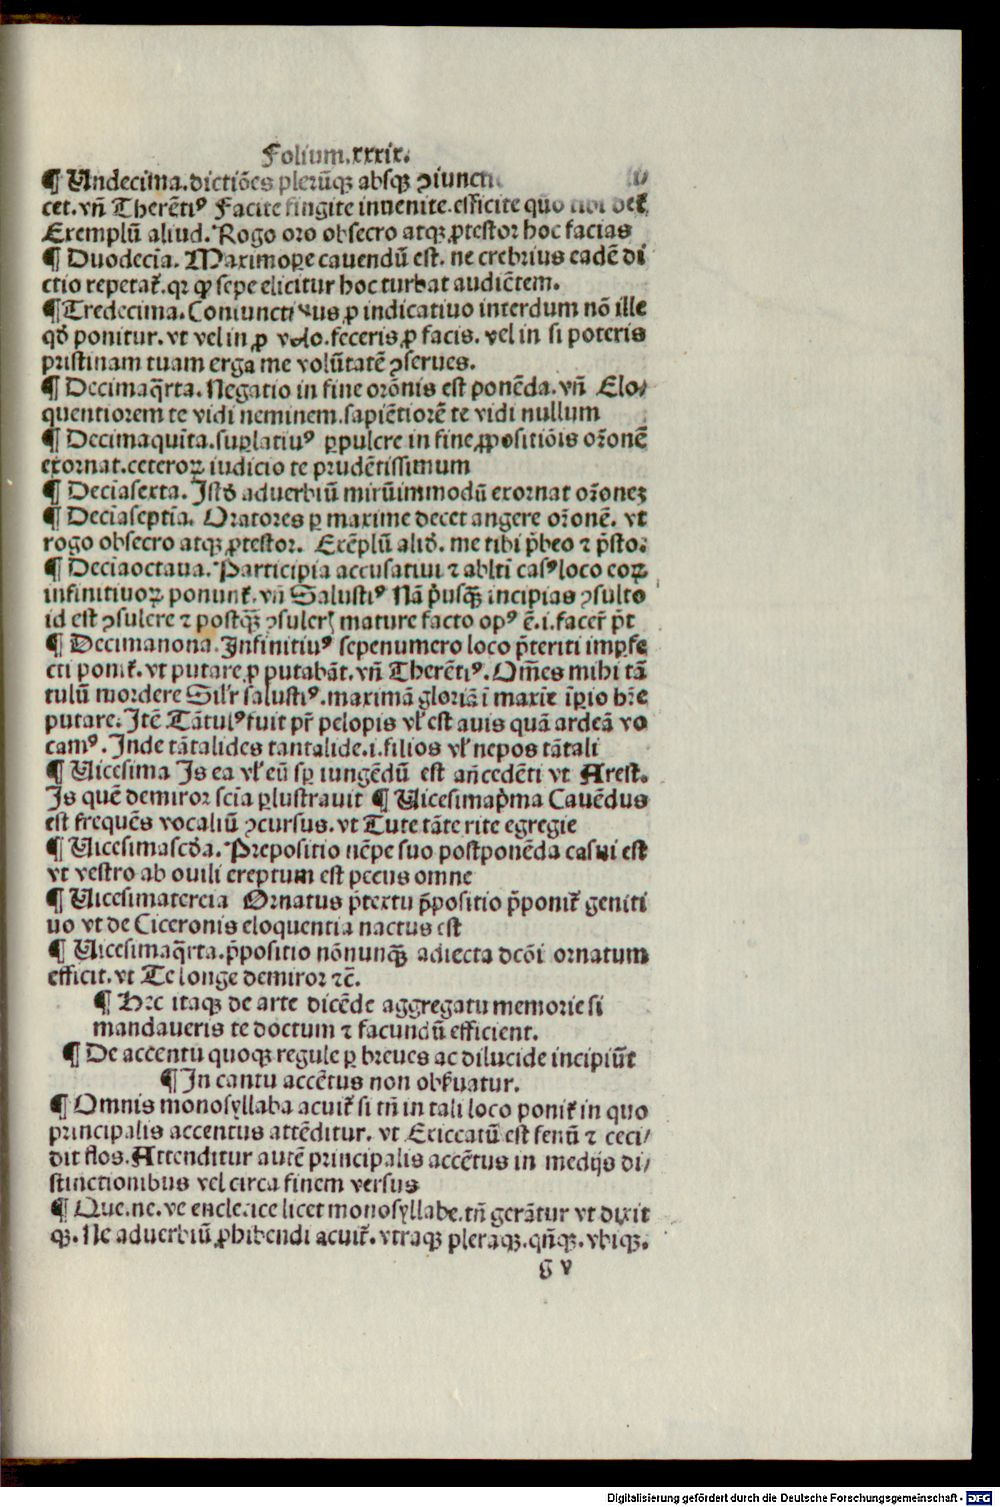 Folium.xxxix.
¶ Undecima.dictiões plerũqꝫ absqꝫ ꝯiuncti
cet.vñ Therẽtiꝰ Facite fingite inuenite.efficite quo tibi deť
Exemplũ aliud. Rogo oro obsecro atqꝫ ꝓtestor hoc facias
¶ Duodecĩa. Maximoꝑe cauendũ est. ne crebrius eadẽ di
ctio repetať.qꝛ ꝙ sepe elicitur hoc turbat audiẽtem.
¶ Tredecima. Coniunctiuus ꝓ indicatiuo interdum nõ ille
qđ ponitur. vt vel in ꝓ volo.feceris ꝓ facis. vel in si poteris
pristinam tuam erga me volũtatẽ ꝯserues.
¶ Decimaq̃rta. Negatio in fine orõnis est ponẽda. vñ Elo/
quentiorem te vidi neminem.sapiẽtiorẽ te vidi nullum
¶ Decimaquĩta.suꝑlatiuꝰ ꝑpulcre in fine ꝓpositiõis oꝛonẽ
exornat.ceteroꝝ iudicio te prudẽtissimum
¶ Decĩasexta. Istđ aduerbiũ mirũimmodũ exornat oꝛoneꝫ
¶ Decĩaseptĩa. Oratores ꝑ maxime decet angere oꝛonẽ. vt
rogo obsecro atqꝫ ꝓtestor. Exẽplũ aliđ. me tibi p̃beo ⁊ p̃sto.
¶ Decĩaoctaua. Participia accusatiui ⁊ abltĩ casꝰ loco eoꝝ
infinitiuoꝝ ponunť. vñ Salustiꝰ Nã p̃usqꝫ̃ incipias ꝯsulto
id est ꝯsulere ⁊ postqꝫ̃ ꝯsuler̃ mature facto opꝰ ẽ.i.facer̃ p̃t
¶ Decimanona. Infinitiuꝰ sepenumero loco p̃teriti imꝑfe
cti poniť. vt putare ꝓ putabãt. vñ Therẽtiꝰ. Om̃es mihi tã
tulũ mordere Sil̃r salustiꝰ. maximã gloriã ĩ maxiẽ ĩꝑio hr̃e
putare. Itẽ Tãtulꝰ fuit pr̃ pelopis vl̕ est auis quã ardeã vo
camꝰ. Inde tãtalides tantalide.i.filios vl̕ nepos tãtali
¶ Uicesima Is ea vl̕ eũ sꝑ iungẽdũ est añcedẽti vt Arest.
Is quẽ demiror scĩa ꝑlustrauit ¶ Uicesimap̃ma Cauẽdus
est frequẽs vocaliũ ꝯcursus. vt Tute tãte rite egregie
¶ Uicesimascđa. Prepositio nẽpe suo postponẽda casui est
vt vestro ab ouili ereptum est pecus omne
¶ Uicesimatercia Ornatus p̃textu p̃positio p̃poniť geniti
uo vt de Ciceronis eloquentia nactus est
¶ Uicesimaq̃rta. p̃positio nõnunqꝫ̃ adiecta dcõi ornatum
efficit. vt Te longe demiror ⁊c̃.
¶ Hec itaqꝫ de arte dicẽde aggregatu memorie si
mandaueris te doctum ⁊ facundũ efficient.
¶ De accentu quoqꝫ regule ꝑ breues ac dilucide incipiũt
¶ In cantu accẽtus non obs̃uatur.
¶ Omnis monosyllaba acuiť si tñ in tali loco poniť in quo
principalis accentus attẽditur. vt Exiccatũ est fenũ ⁊ ceci/
dit flos. Attenditur autẽ principalis accẽtus in medijs di/
stinctionibus vel circa finem versus
¶ Que.ne.ve encletice licet monosyllabe.tñ gerãtur vt dixit
qꝫ. Ne aduerbiũ ꝓhibendi acuiť. vtraqꝫ pleraqꝫ.qñqꝫ.vbiqꝫ.
g v
Digitalisierung gefördert durch die Deutsche Forschungsgemeinschaft - DFG